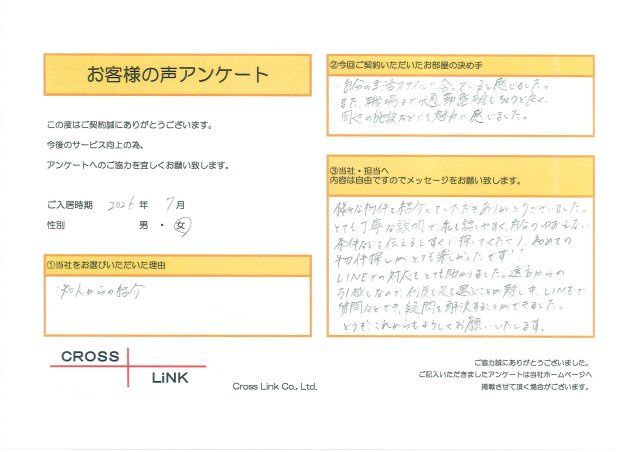 お客様の声アンケート
この度はご契約誠にありがとうございます。
今後のサービス向上の為、
アンケートへのご協力を宜しくお願い致します。
ご入居時期 2026 年 7 月
性別 男 ・ 女
①当社をお選びいただいた理由
知人からの紹介
CROSS
LiNK
Cross Link Co., Ltd.
②今回ご契約いただいたお部屋の決め手
自分の生活スタイルに合っていると感じました。
また、職場まで通勤距離もちょうど良く、
周辺の施設などにも魅力に感じました。
③当社・担当へ
内容は自由ですのでメッセージをお願い致します。
様々な物件を紹介していただきありがとうございました。
とても丁寧な説明で、私も話しやすく、自分のゆずれない
条件なども伝えるとすぐに探してくださり、初めての
物件探しがとても楽しかったです!!
LINEでの対応もとても助かりました。遠方からの
引越しなので、何度も足を運ぶことが難しい中、LINEで
質問などでき、疑問を解決することができました。
どうぞ、これからもよろしくお願いいたします。
ご協力誠にありがとうございました。
ご記入いただきましたアンケートは当社ホームページへ
掲載させて頂く場合がございます。